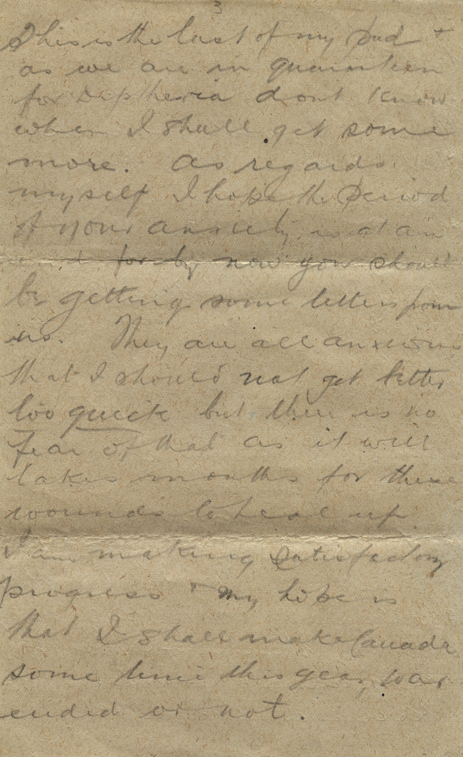 3
This is the last of my pad &
as we are in quaranteen
for Diptheria dont know
when I shall get some
more. As regards
myself I hope the period
of your anxiety is at an
end for by now you should
be getting some letters from
me. They are all anxious
that I should not get better
too quick but there is no
fear of that as it will
take months for these
wounds to heal up.
I am making satisfactory
progress & my hope is
that I shall make Canada
some time this year, war
ended or not.